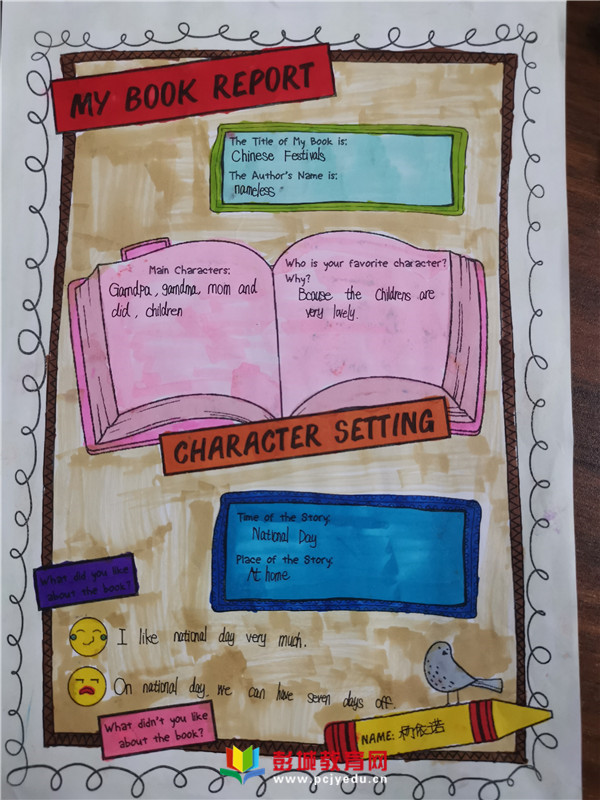 MY BOOK REPORT
The Title of My Book is:
Chinese Festivals
The Author's Name is:
nameless
Main Characters:
Gamdpa, gamdma, mom and
did, children
Who is your favorite character?
Why?
Bcouse the Childrens are
very lovely.
CHARACTER SETTING
Time of the Story:
National Day
Place of the Story:
At home
What did you like
about the book?
I like national day very much.
On national day. we can have seven days off.
What didn't you like
about the book?
NAME: 杨依诺
彭城教育网
www.pcjyedu.cn